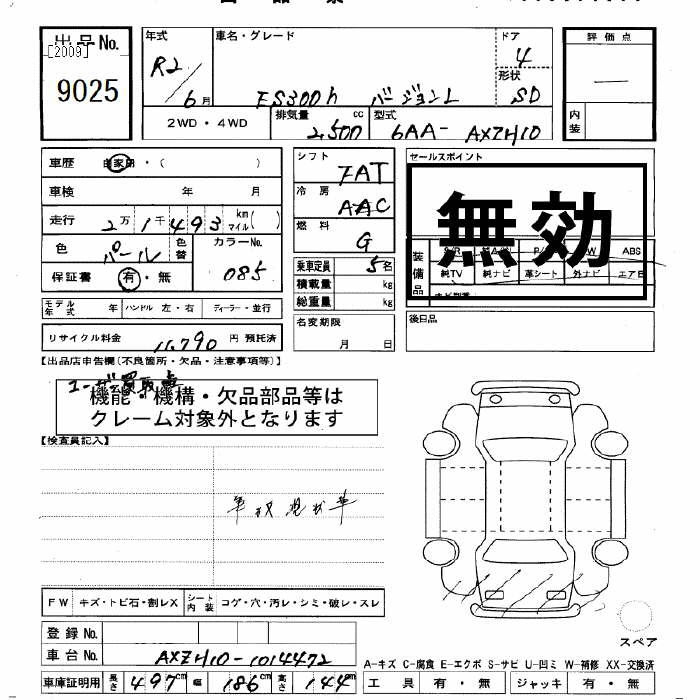 出品No.
[2009]
9025
年式
R2/6月
車名・グレード
ES300h バージョンL
ドア
4
形状
SD
評価点
—
内装
2WD・4WD
排気量 2,500 cc
型式 6AA-AXZH10
車歴 自家用・( )
車検 年 月
走行 2万1千493 km マイル( )
色 パール 色替
カラーNo. 085
保証書 有・無
シフト FAT
冷房 AAC
燃料 G
乗車定員 5名
積載量 kg
総重量 kg
セールスポイント
無効
装備品
S/R 純A/W P/S P/W ABS
純TV 純ナビ 革シート 外ナビ エアB
モデル年式 年 ハンドル 左・右 ディーラー・並行
リサイクル料金 11,790 円 預託済
名変期限
月 日
後日品
【出品店申告欄(不良箇所・欠品・注意事項等)】
ユーザー買取車
機能・機構・欠品部品等は
クレーム対象外となります
【検査員記入】
車取現状車
FW キズ・トビ石・割レX
シート内装 コゲ・穴・汚レ・シミ・破レ・スレ
登録No.
車台No. AXZH10-1014472
車庫証明用 長さ 497cm 幅 186cm 高さ 144cm
スペア
A-キズ C-腐食 E-エクボ S-サビ U-凹ミ W-補修 XX-交換済
工具 有・無 ジャッキ 有・無